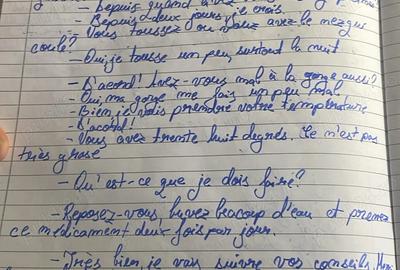 - Depuis quand a
- Depuis deux jours, je crois.
- Vous toussez ou vous avez le nez qui
coule?
- Oui, je tousse un peu, surtout la nuit
- D'accord! Avez-vous mal à la gorge aussi?
- Oui, ma gorge me fais un peu mal
- Bien, je vais prendre votre température
- D'accord!
- Vous avez trente huit degrés. Ce n'est pas
très grave
- Qu'est-ce que je dois faire?
- Reposez-vous, buvez beacoup d'eau et prenez
ce médicament deux fois par jour.
- Très bien, je vais suivre vos conseils,